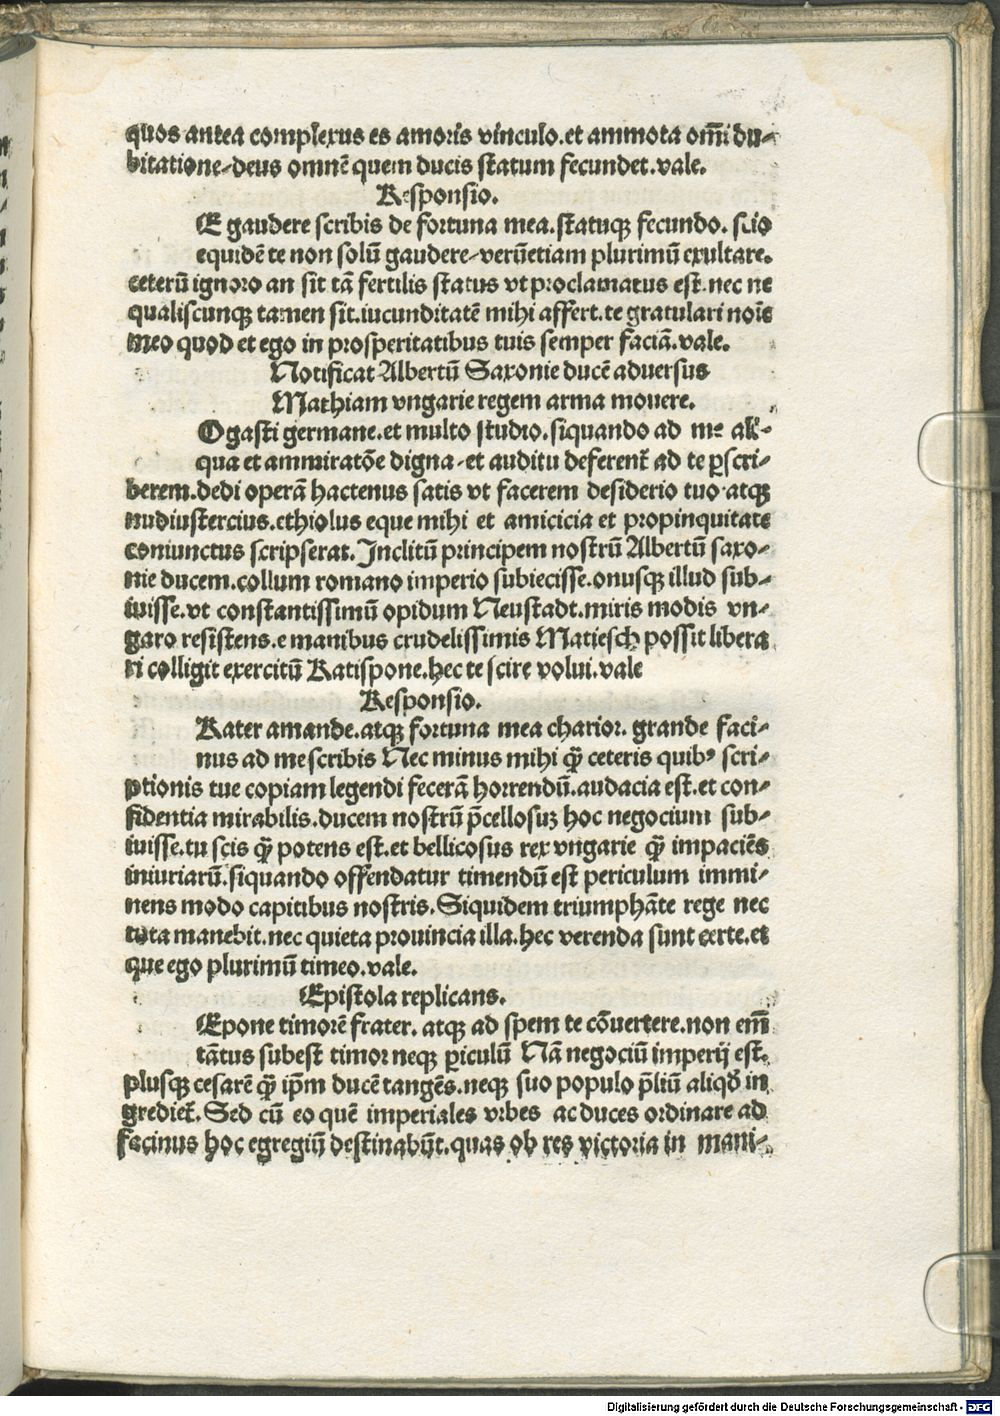 quos antea complexus es amoris vinculo.et ammota om̄i du-
bitatione-deus omnē quem ducis statum fecundet.vale.
Responsio.
E gaudere scribis de fortuna mea.statuqꝫ fecundo. scio
equidē te non solū gaudere-verūetiam plurimū exultare.
ceterū ignoro an sit tā fertilis status vt proclamatus est.nec ne
qualiscunqꝫ tamen sit.iucunditatē mihi affert.te gratulari noīe
meo quod et ego in prosperitatibus tuis semper faciā.vale.
Notificat Albertū Saxonie ducē aduersus
Mathiam vngarie regem arma mouere.
Ogasti germane.et multo studio.siquando ad me ali-
qua et ammiratōe digna-et auditu deferent̄ ad te ꝑscri-
berem.dedi operā hactenus satis vt facerem desiderio tuo.atqꝫ
nudiustercius.ethiolus eque mihi et amicicia et propinquitate
coniunctus scripserat. Inclitū principem nostrū Albertū saxo-
nie ducem.collum romano imperio subiecisse.onusqꝫ illud sub-
iuisse.vt constantissimū opidum Neustadt.miris modis vn-
garo resistens.e manibus crudelissimis Matiesch possit libera
ri colligit exercitū Ratispone.hec te scire volui.vale
Responsio.
Rater amande.atqꝫ fortuna mea charior. grande faci-
nus ad me scribis Nec minus mihi qꝫ̄ ceteris quibꝰ scri-
ptionis tue copiam legendi fecerā horrendū.audacia est.et con-
fidentia mirabilis.ducem nostrū p̄cellosuꝫ hoc negocium sub-
iuisse.tu scis qꝫ̄ potens est.et bellicosus rex vngarie qꝫ̄ impaciēs
iniuriarū.siquando offendatur timendū est periculum immi-
nens modo capitibus nostris. Siquidem triumphāte rege nec
tuta manebit.nec quieta prouincia illa.hec verenda sunt certe.et
que ego plurimū timeo.vale.
Epistola replicans.
Epone timorē frater. atqꝫ ad spem te cōuertere.non em̄
tātus subest timor neqꝫ ꝑiculū Nā negociū imperij est.
plusqꝫ cesarē qꝫ̄ ip̄m ducē tangēs.neqꝫ suo populo p̄liū aliqd̄ in
grediet̄. Sed cū eo quē imperiales vrbes ac duces ordinare ad
facinus hoc egregiū destinabūt.quas ob res victoria in mani-
Digitalisierung gefördert durch die Deutsche Forschungsgemeinschaft - DFG